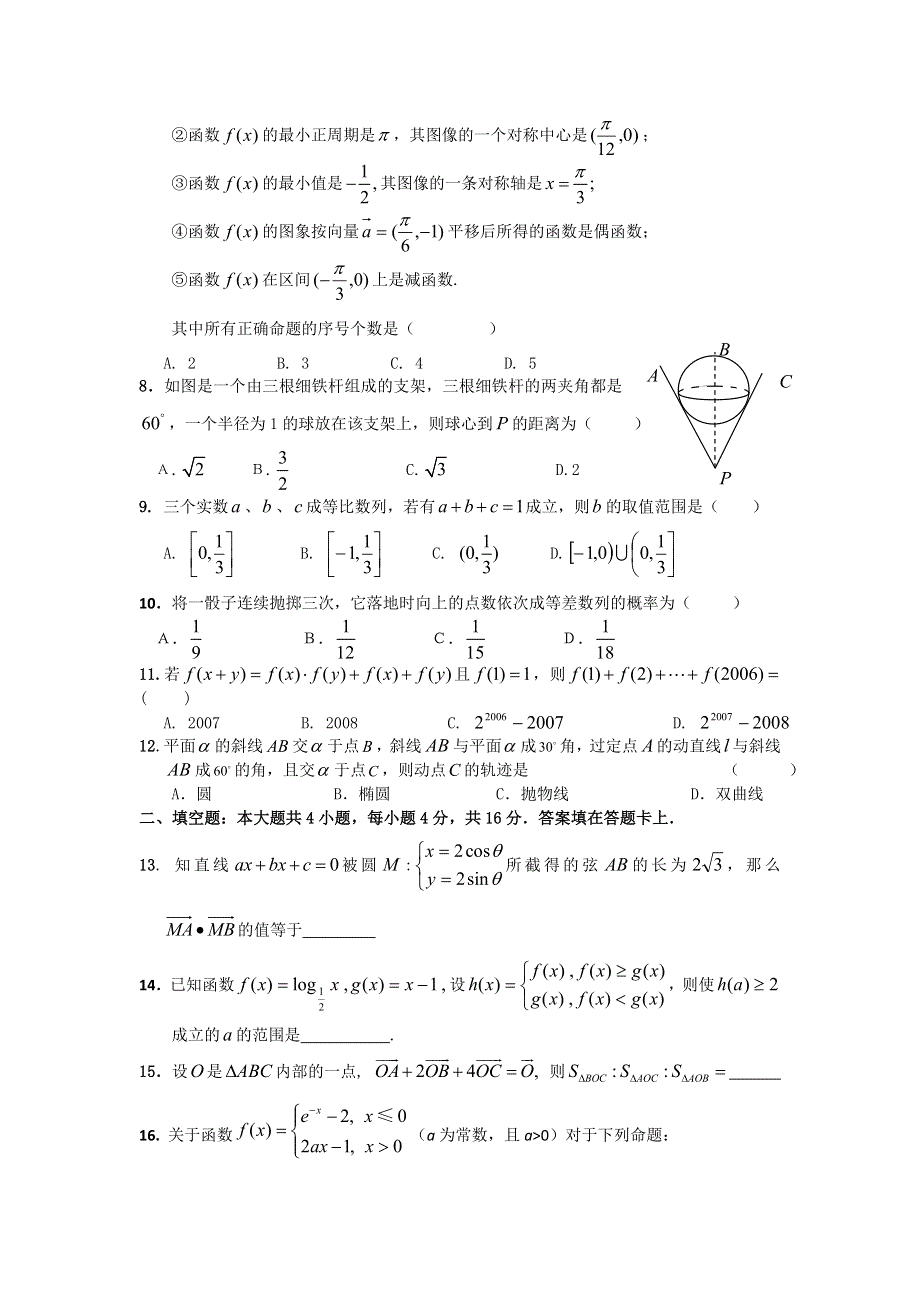 ②函数 f(x) 的最小正周期是 π，其图像的一个对称中心是 (π/12,0)；
③函数 f(x) 的最小值是 −1/2, 其图像的一条对称轴是 x = π/3;
④函数 f(x) 的图象按向量 a⃗ = (π/6,−1) 平移后所得的函数是偶函数;
⑤函数 f(x) 在区间 (−π/3,0) 上是减函数.
其中所有正确命题的序号个数是（ ）
A. 2 B. 3 C. 4 D. 5
8．如图是一个由三根细铁杆组成的支架，三根细铁杆的两夹角都是
60°，一个半径为 1 的球放在该支架上，则球心到 P 的距离为（ ）
A B C P
A. √2 B. 3/2 C. √3 D.2
9. 三个实数 a 、b 、c 成等比数列，若有 a+b+c=1 成立，则 b 的取值范围是（ ）
A. [0,1/3] B. [−1,1/3] C. (0,1/3) D. [−1,0)∪(0,1/3]
10．将一骰子连续抛掷三次，它落地时向上的点数依次成等差数列的概率为（ ）
A. 1/9 B. 1/12 C. 1/15 D. 1/18
11. 若 f(x+y)=f(x)·f(y)+f(x)+f(y) 且 f(1)=1，则 f(1)+f(2)+⋯+f(2006)=
( )
A. 2007 B. 2008 C. 2^2006−2007 D. 2^2007−2008
12. 平面 α 的斜线 AB 交 α 于点 B，斜线 AB 与平面 α 成 30° 角，过定点 A 的动直线 l 与斜线
AB 成 60° 的角，且交 α 于点 C，则动点 C 的轨迹是 （ ）
A．圆 B．椭圆 C．抛物线 D．双曲线
二、填空题：本大题共 4 小题，每小题 4 分，共 16 分．答案填在答题卡上．
13. 知直线 ax+bx+c=0 被圆 M : {x=2cosθ y=2sinθ 所截得的弦 AB 的长为 2√3，那么
MA⃗•MB⃗ 的值等于________
14．已知函数 f(x)=log_{1/2} x , g(x)=x−1, 设 h(x)={f(x) , f(x)≥g(x) g(x) , f(x)<g(x)，则使 h(a)≥2
成立的 a 的范围是__________.
15．设 O 是 ΔABC 内部的一点, OA⃗+2OB⃗+4OC⃗=O⃗, 则 S_{ΔBOC}:S_{ΔAOC}:S_{ΔAOB}=______
16. 关于函数 f(x)={e^{−x}−2, x≤0 2ax−1, x>0 （a 为常数，且 a>0）对于下列命题：